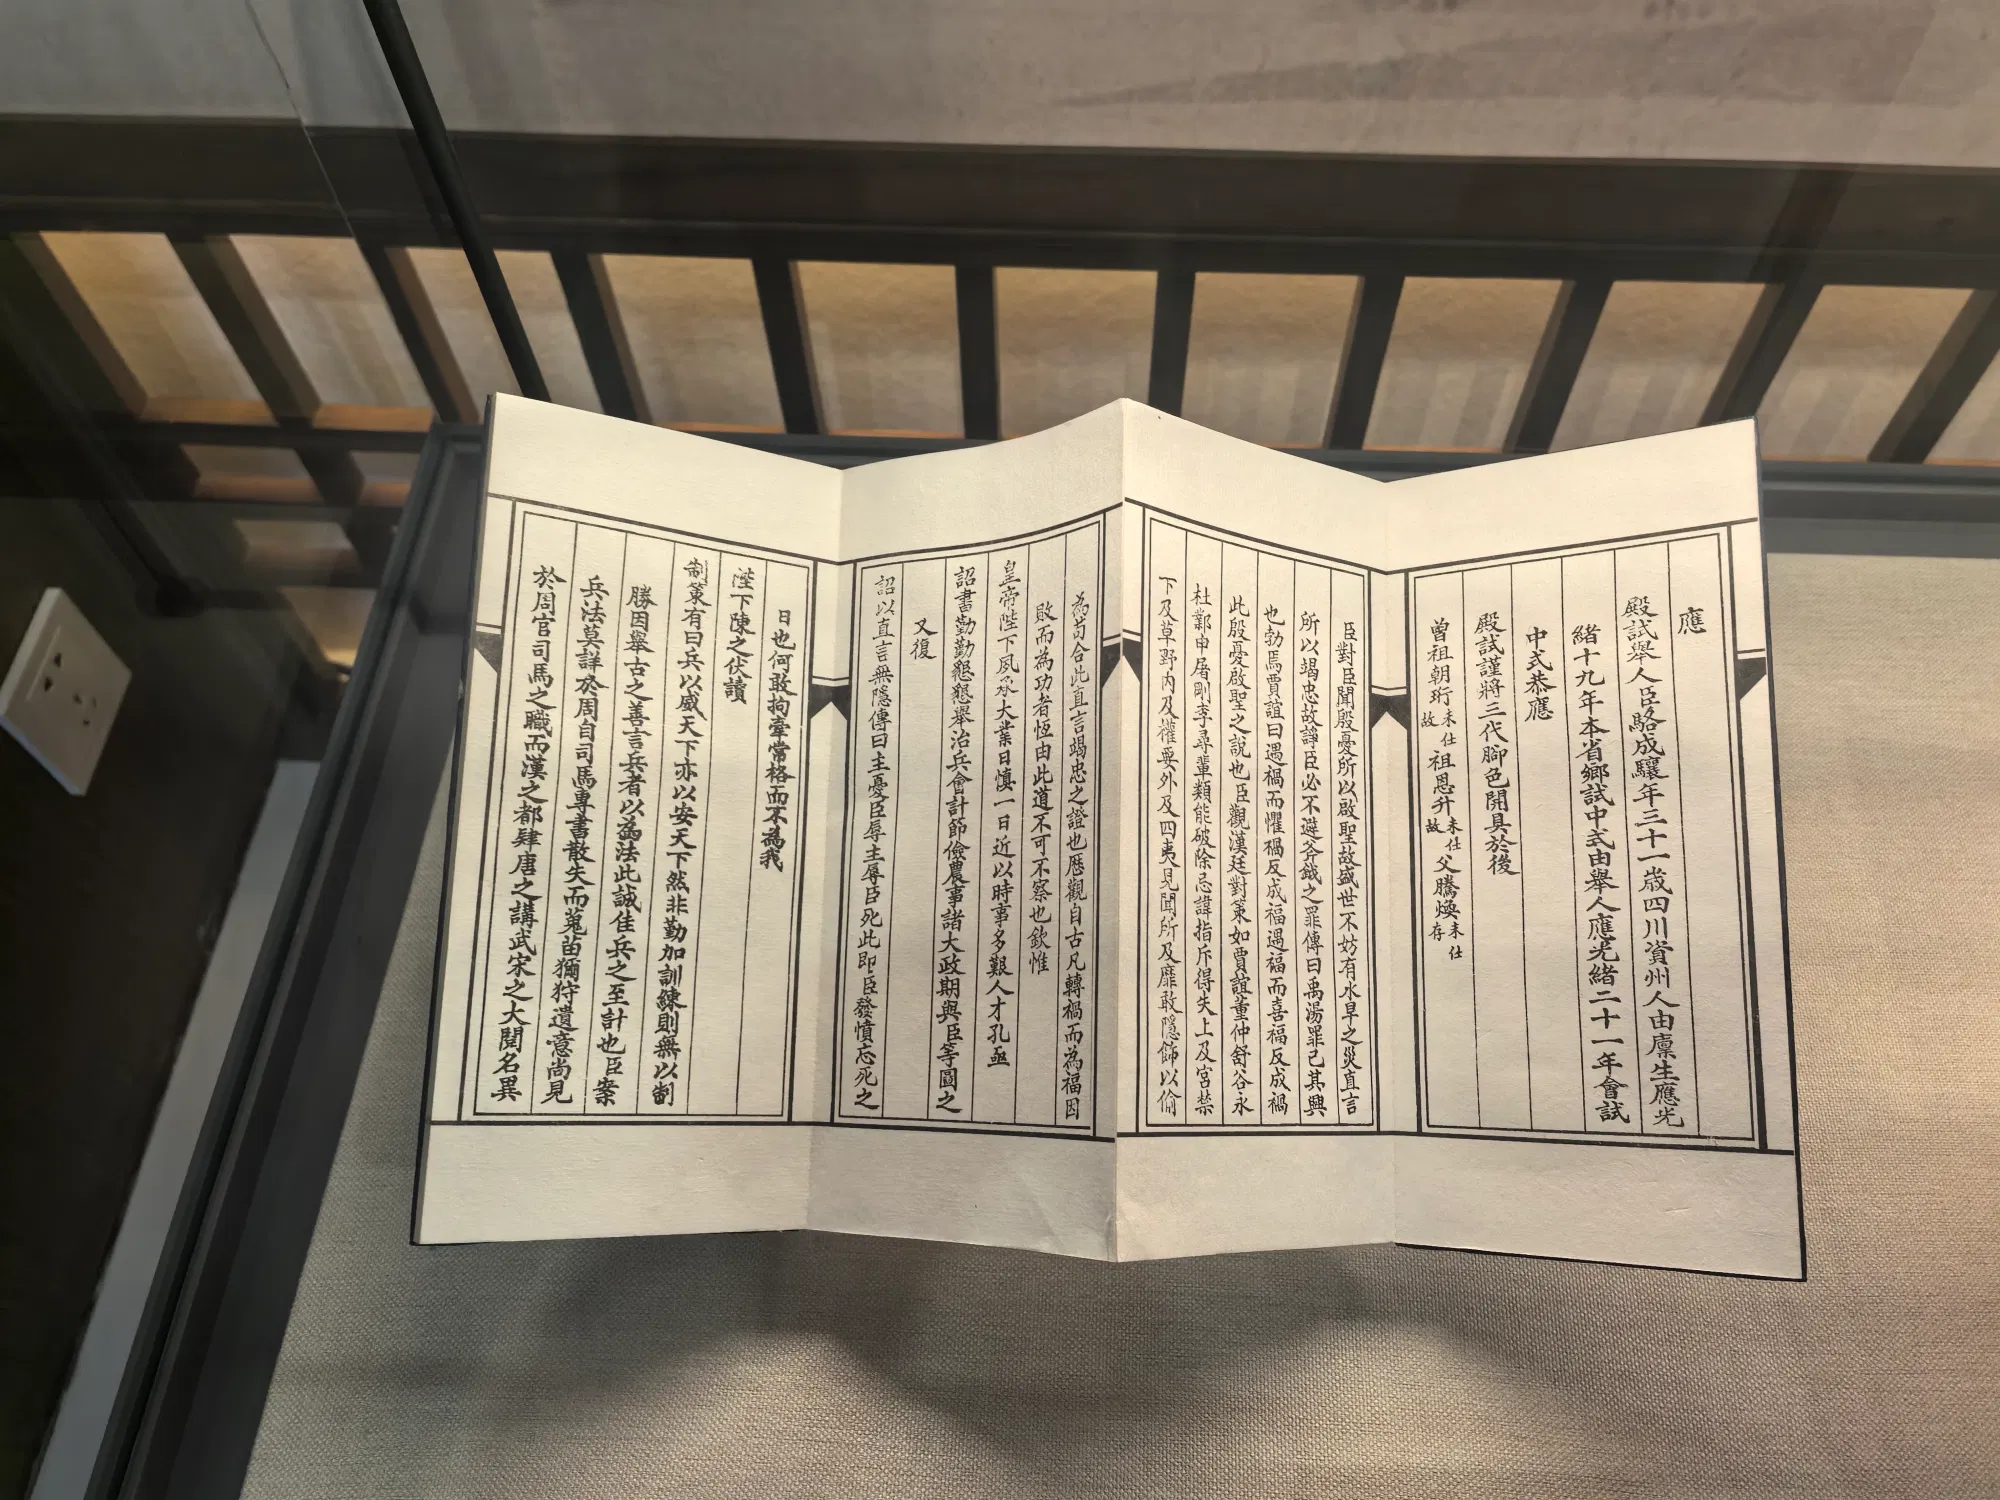 應
殿試舉人臣駱成驤年三十一歲四川資州人由廪生應光
緒十九年本省鄉試中式由舉人應光緒二十一年會試
中式恭應
殿試謹將三代腳色開具於後
曾祖朝珩未仕故 祖恩升未仕故 父騰煥未仕存
臣對臣聞殷憂所以啟聖故盛世不妨有水旱之災直言
所以竭忠故諍臣必不避斧鉞之罪傳曰禹湯罪己其興
也勃焉賈誼曰遇禍而懼禍反成福遇福而喜福反成禍
此殷憂啟聖之說也臣觀漢廷對策如賈誼董仲舒谷永
杜鄴申屠剛李尋輩類能破除忌諱指斥得失上及宮禁
下及草野內及權要外及四夷見聞所及靡敢隱飾以偷
為苟合此直言竭忠之證也歷觀自古凡轉禍而為福因
敗而為功者恆由此道不可不察也欽惟
皇帝陛下夙承大業日慎一日近以時事多艱人才孔亟
詔書勤勤懇懇舉治兵會計節儉農事諸大政期與臣等圖之
又復
詔以直言無隱傳曰主憂臣辱主辱臣死此即臣發憤忘死之
日也何敢拘牽常格而不為我
陛下陳之伏讀
制策有曰兵以威天下亦以安天下然非勤加訓練則無以制
勝因舉古之善言兵者以為法此誠佳兵之至計也臣案
兵法莫詳於周自司馬專書散失而蒐苗獮狩遺意尚見
於周官司馬之職而漢之都肄唐之講武宋之大閱名異